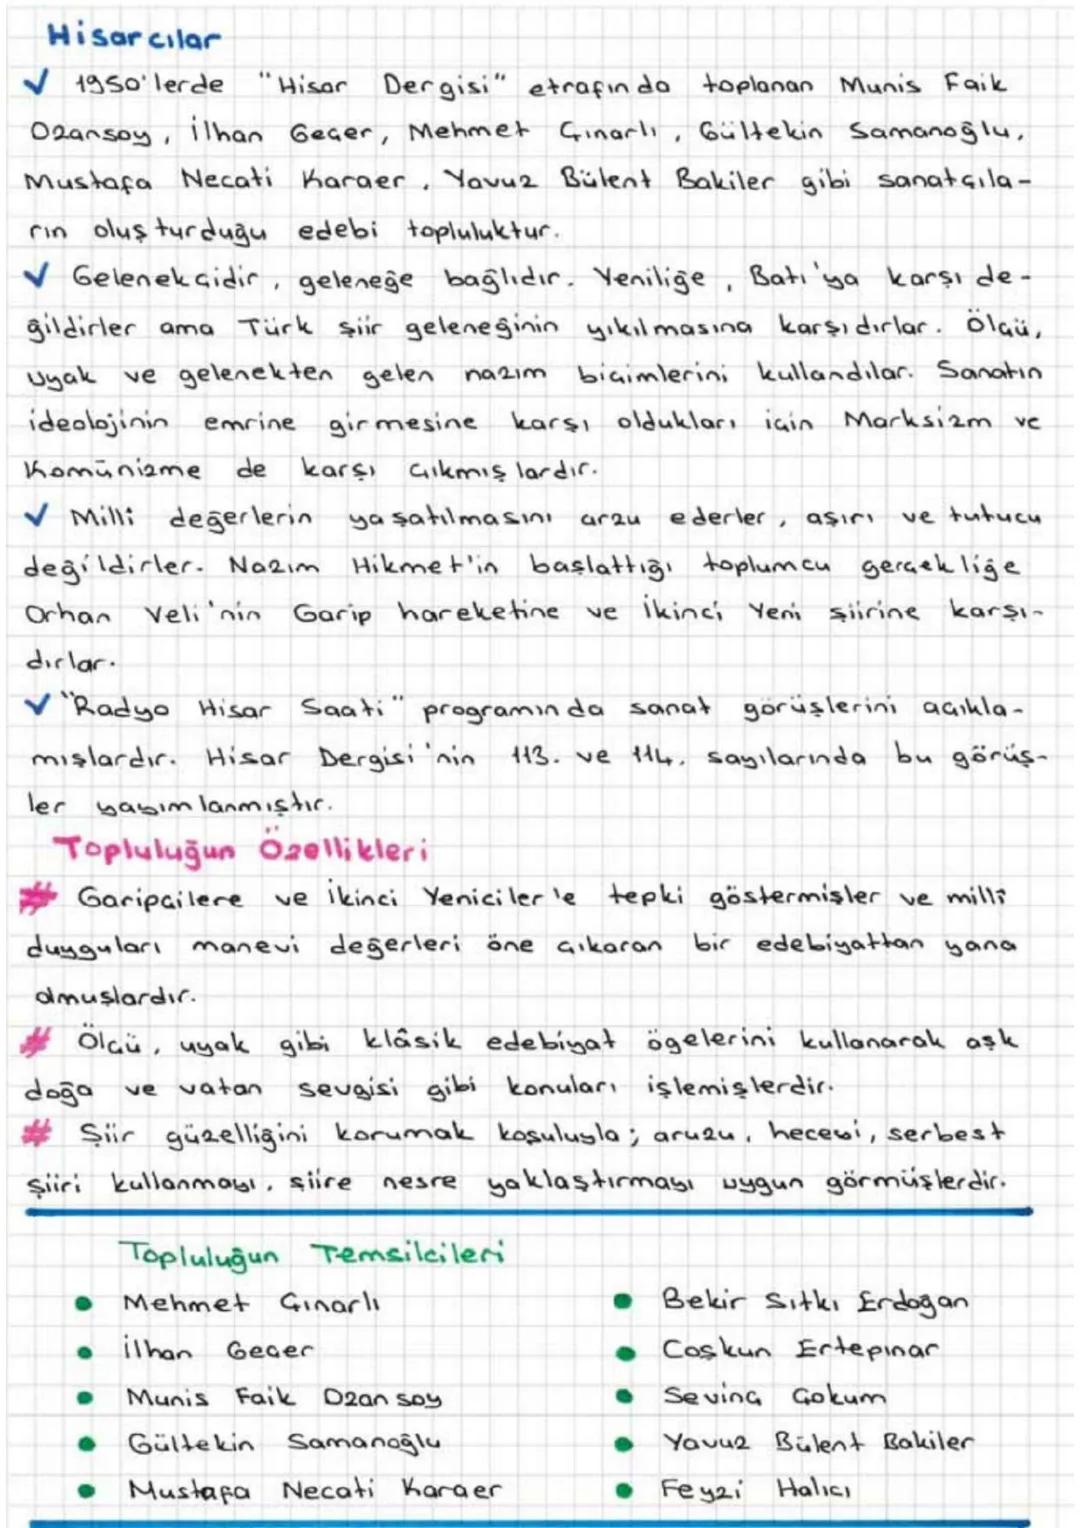 Hisarcılar
✓ 1950'lerde "Hisar Dergisi" etrafında toplanan Munis Faik
Ozansoy, İlhan Geçer, Mehmet Çınarlı, Gültekin Samanoğlu,
Mustafa Necati Karaer, Yavuz Bülent Bakiler gibi sanatçıla-
rın oluşturduğu edebi topluluktur.
✓ Gelenekçidir, geleneğe bağlıdır. Yeniliğe, Batı'ya karşı de-
ğildirler ama Türk şiir geleneğinin yıkılmasına karşıdırlar. Ölçü,
uyak ve gelenekten gelen nazım biçimlerini kullandılar. Sanatın
ideolojinin emrine girmesine karşı oldukları için Marksizm ve
Komünizme de karşı çıkmışlardır.
✓ Milli değerlerin yaşatılmasını arzu ederler, aşırı ve tutucu
değildirler. Nazım Hikmet'in başlattığı toplumcu gerçekliğe
Orhan Veli'nin Garip hareketine ve İkinci Yeni şiirine karşı-
dırlar.
✓ "Radyo Hisar Saati" programında sanat görüşlerini açıkla-
mışlardır. Hisar Dergisi'nin 113. ve 114. sayılarında bu görüş-
ler yayımlanmıştır.
Topluluğun Özellikleri
# Garipçilere ve İkinci Yeniciler'e tepki göstermişler ve millî
duyguları manevi değerleri öne çıkaran bir edebiyattan yana
olmuşlardır.
# Ölçü, uyak gibi klâsik edebiyat ögelerini kullanarak aşk
doğa ve vatan sevgisi gibi konuları işlemişlerdir.
# Şiir güzelliğini korumak koşuluyla; aruzu, heceyi, serbest
şiiri kullanmayı, şiire nesre yaklaştırmayı uygun görmüşlerdir.
Topluluğun Temsilcileri
• Mehmet Çınarlı
• İlhan Geçer
• Munis Faik Ozansoy
• Gültekin Samanoğlu
• Mustafa Necati Karaer
• Bekir Sıtkı Erdoğan
• Coşkun Ertepınar
• Sevinç Çokum
• Yavuz Bülent Bakiler
• Feyzi Halıcı